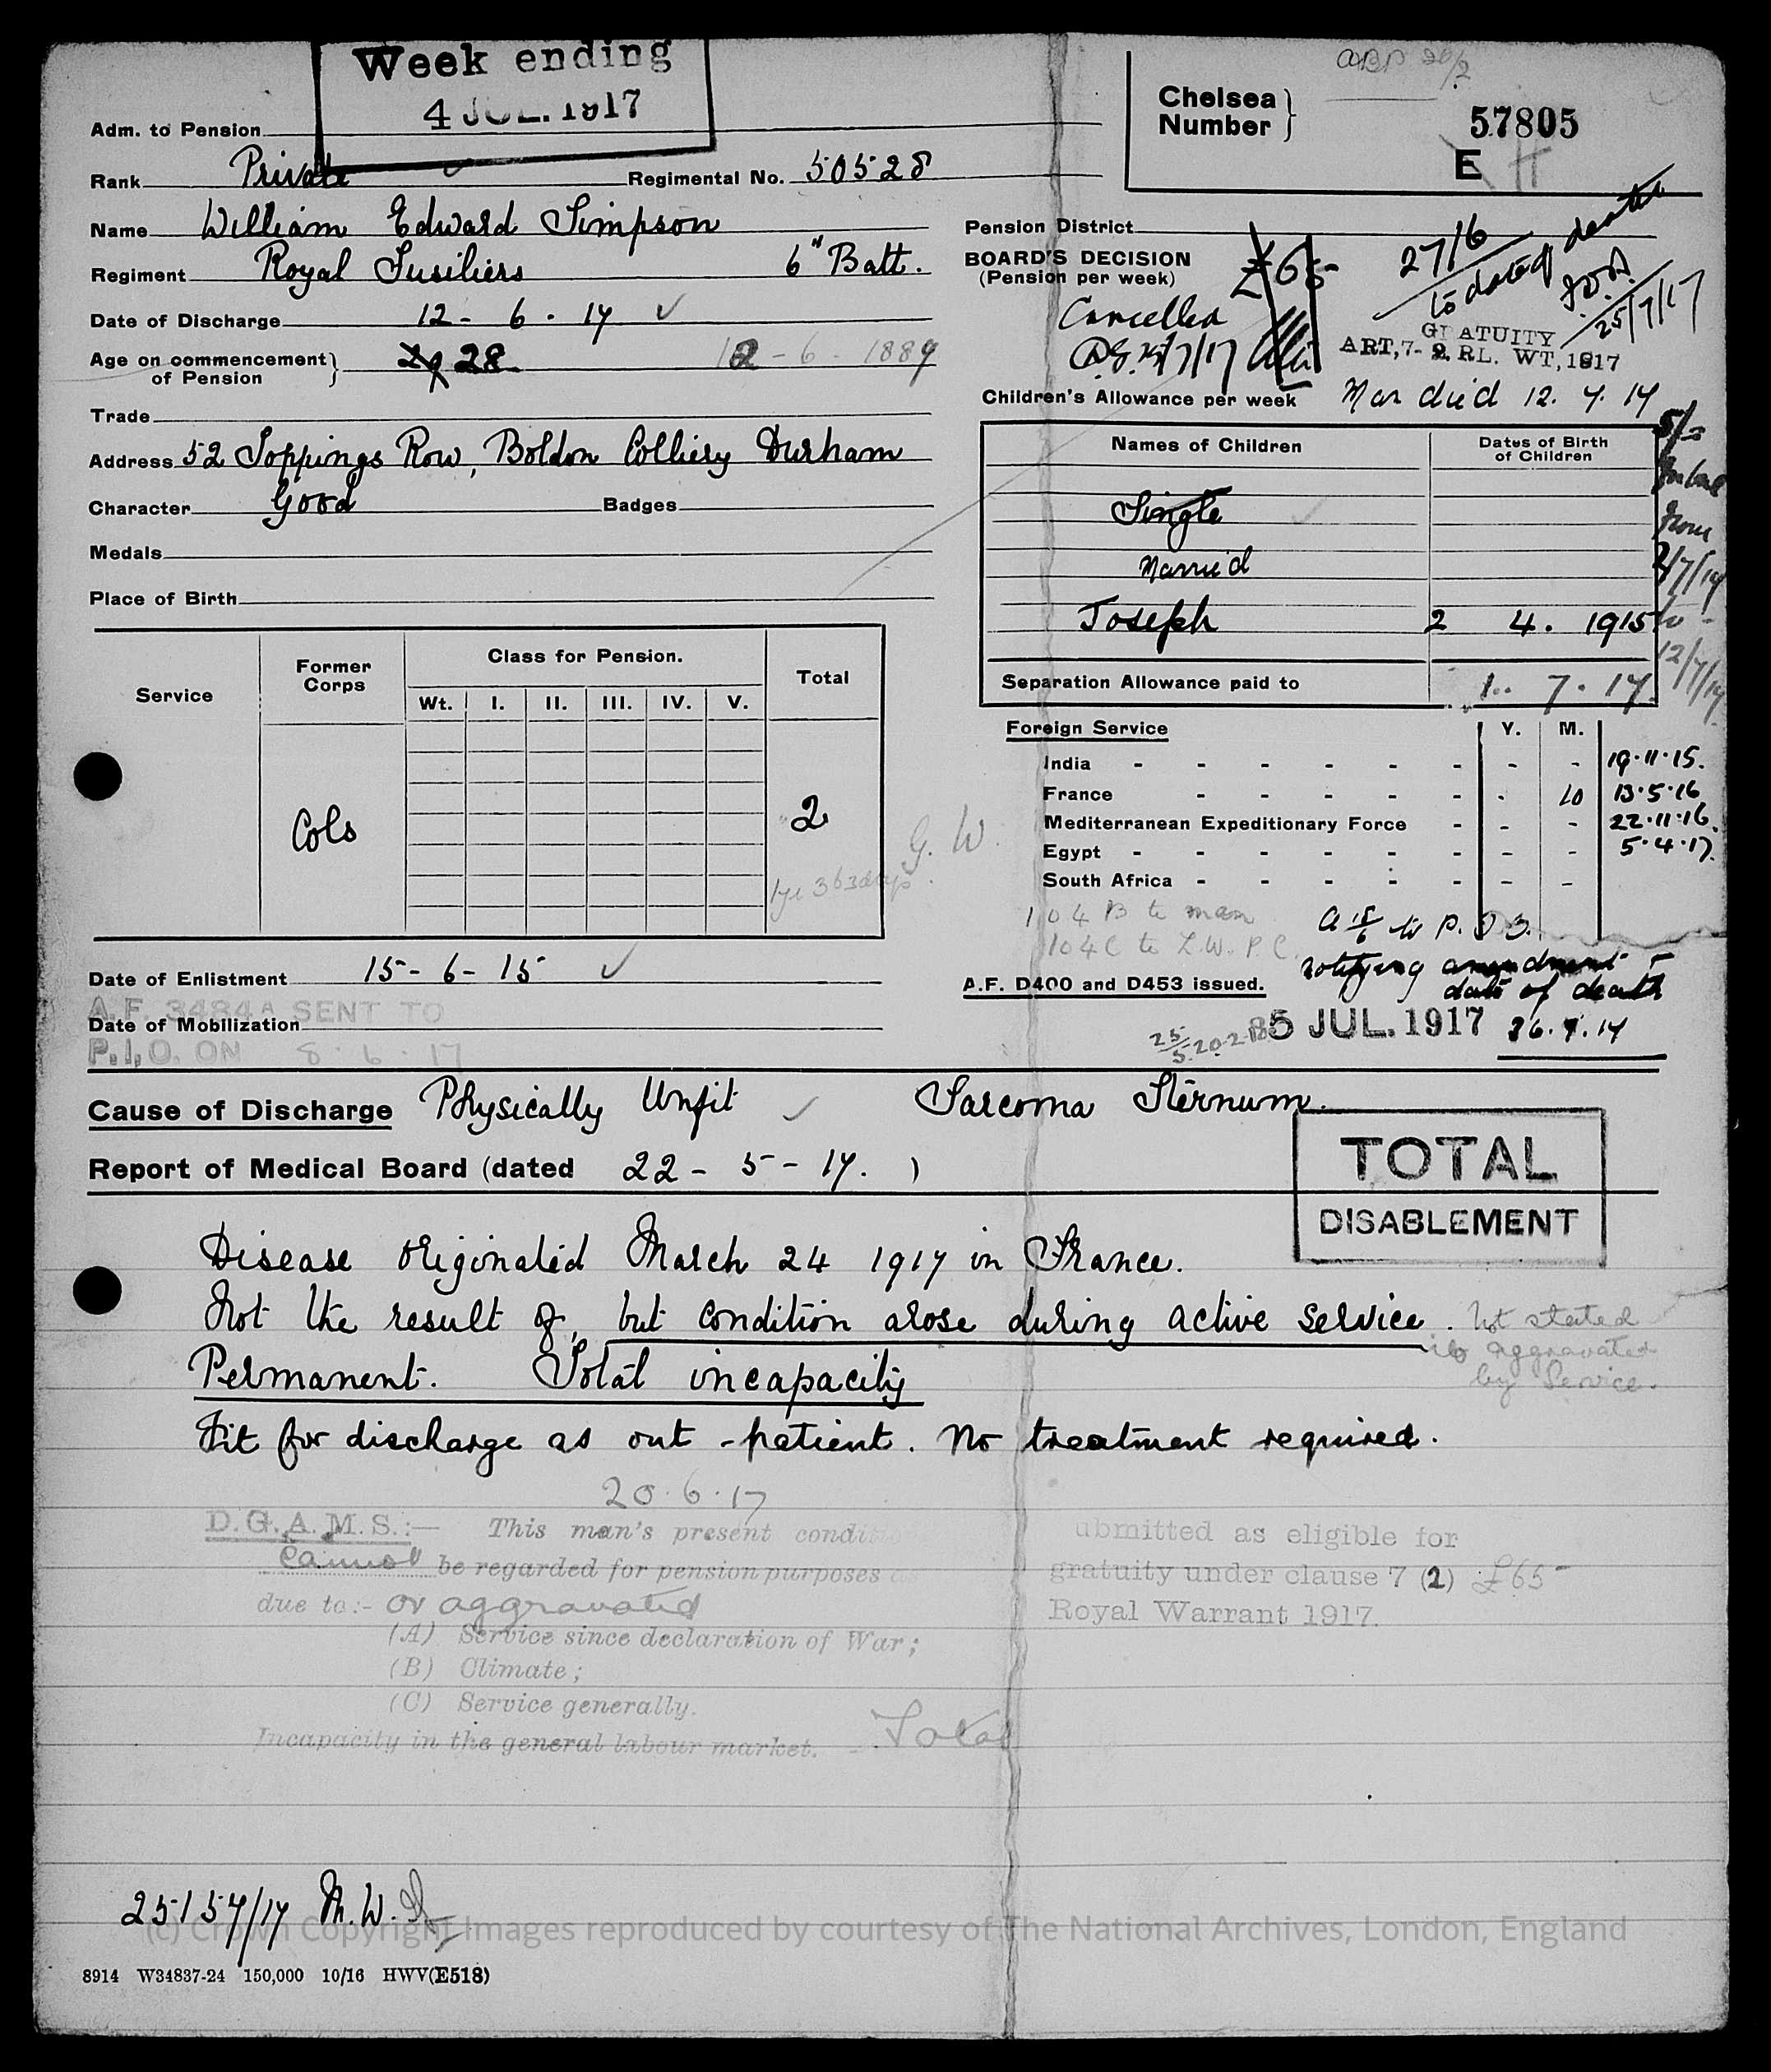 Week ending
4 JUL. 1917
Adm. to Pension
Chelsea Number
57805
E H
Rank Private Regimental No. 50528
Name William Edward Simpson
Regiment Royal Fusiliers 6" Batt.
Date of Discharge 12 - 6 - 17
Age on commencement of Pension 29 28 12 - 6 - 1889
Trade
Address 52 Soppings Row, Boldon Colliery Durham
Character Good Badges
Medals
Place of Birth
Pension District
BOARD'S DECISION
(Pension per week)
£65
27/6
to date of death
25/7/17
Cancelled
GRATUITY
ART, 7- 2. RL. WT, 1917
Children's Allowance per week Man died 12. 7. 17
Names of Children Dates of Birth of Children
Single
Married
Joseph 2 4. 1915
Separation Allowance paid to 1. 7. 17.
5/-
from
2/7/17
to -
12/7/17
Service Former Corps Class for Pension. Total
Wt. I. II. III. IV. V.
Cols 2
1yr 363days
G. W.
Foreign Service Y. M.
India - - - - - - - - 19.11.15.
France - - - - - - 10 13.5.16
Mediterranean Expeditionary Force - - - 22.11.16.
Egypt - - - - - - - - 5.4.17.
South Africa - - - - - - -
104 B to man
104 C to L.W.P.C.
notifying amendment
date of death
26.7.17
A.F. D400 and D453 issued.
5 JUL. 1917
Date of Enlistment 15 - 6 - 15
A.F. 3484A SENT TO
Date of Mobilization
P.I.O. ON 8.6.17
Cause of Discharge Physically Unfit Sarcoma Sternum.
Report of Medical Board (dated 22 - 5 - 17. )
TOTAL
DISABLEMENT
Disease originated March 24 1917 in France.
Not the result of, but condition arose during active service.
Not stated
if aggravated
by Service.
Permanent. Total incapacity
Fit for discharge as out-patient. No treatment required.
20.6.17
D.G.A.M.S.:— This man's present conditi
cannot be regarded for pension purposes as
due to:- or aggravated
(A) Service since declaration of War;
(B) Climate;
(C) Service generally.
Incapacity in the general labour market. - Total
ubmitted as eligible for
gratuity under clause 7 (2) £65-
Royal Warrant 1917.
25157/17 M.W.
(c) Crown Copyright Images reproduced by courtesy of The National Archives, London, England
8914 W34837-24 150,000 10/16 HWV(E518)